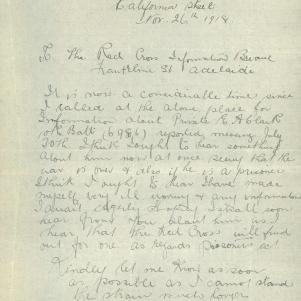 California Street
Nov. 26th 1918
To The Red Cross Information Bureau
Frankline St Adelaide
It is now a considerable time since
I called at the above place for
Information about Private R A Clark
Batt (6986) reported missing July
30th I think I ought to hear something
about him now at once seeing that the
war is over & also if he is a prisoner
I think I ought to hear I have made
myself very ill worrying & any information
I await eagerly hoping I shall soon
hear from you about him as I
hear that the Red Cross will find
out for one as regards prisoners ect
Kindley let me know as soon
as possible as I cannot stand
the strain much longer